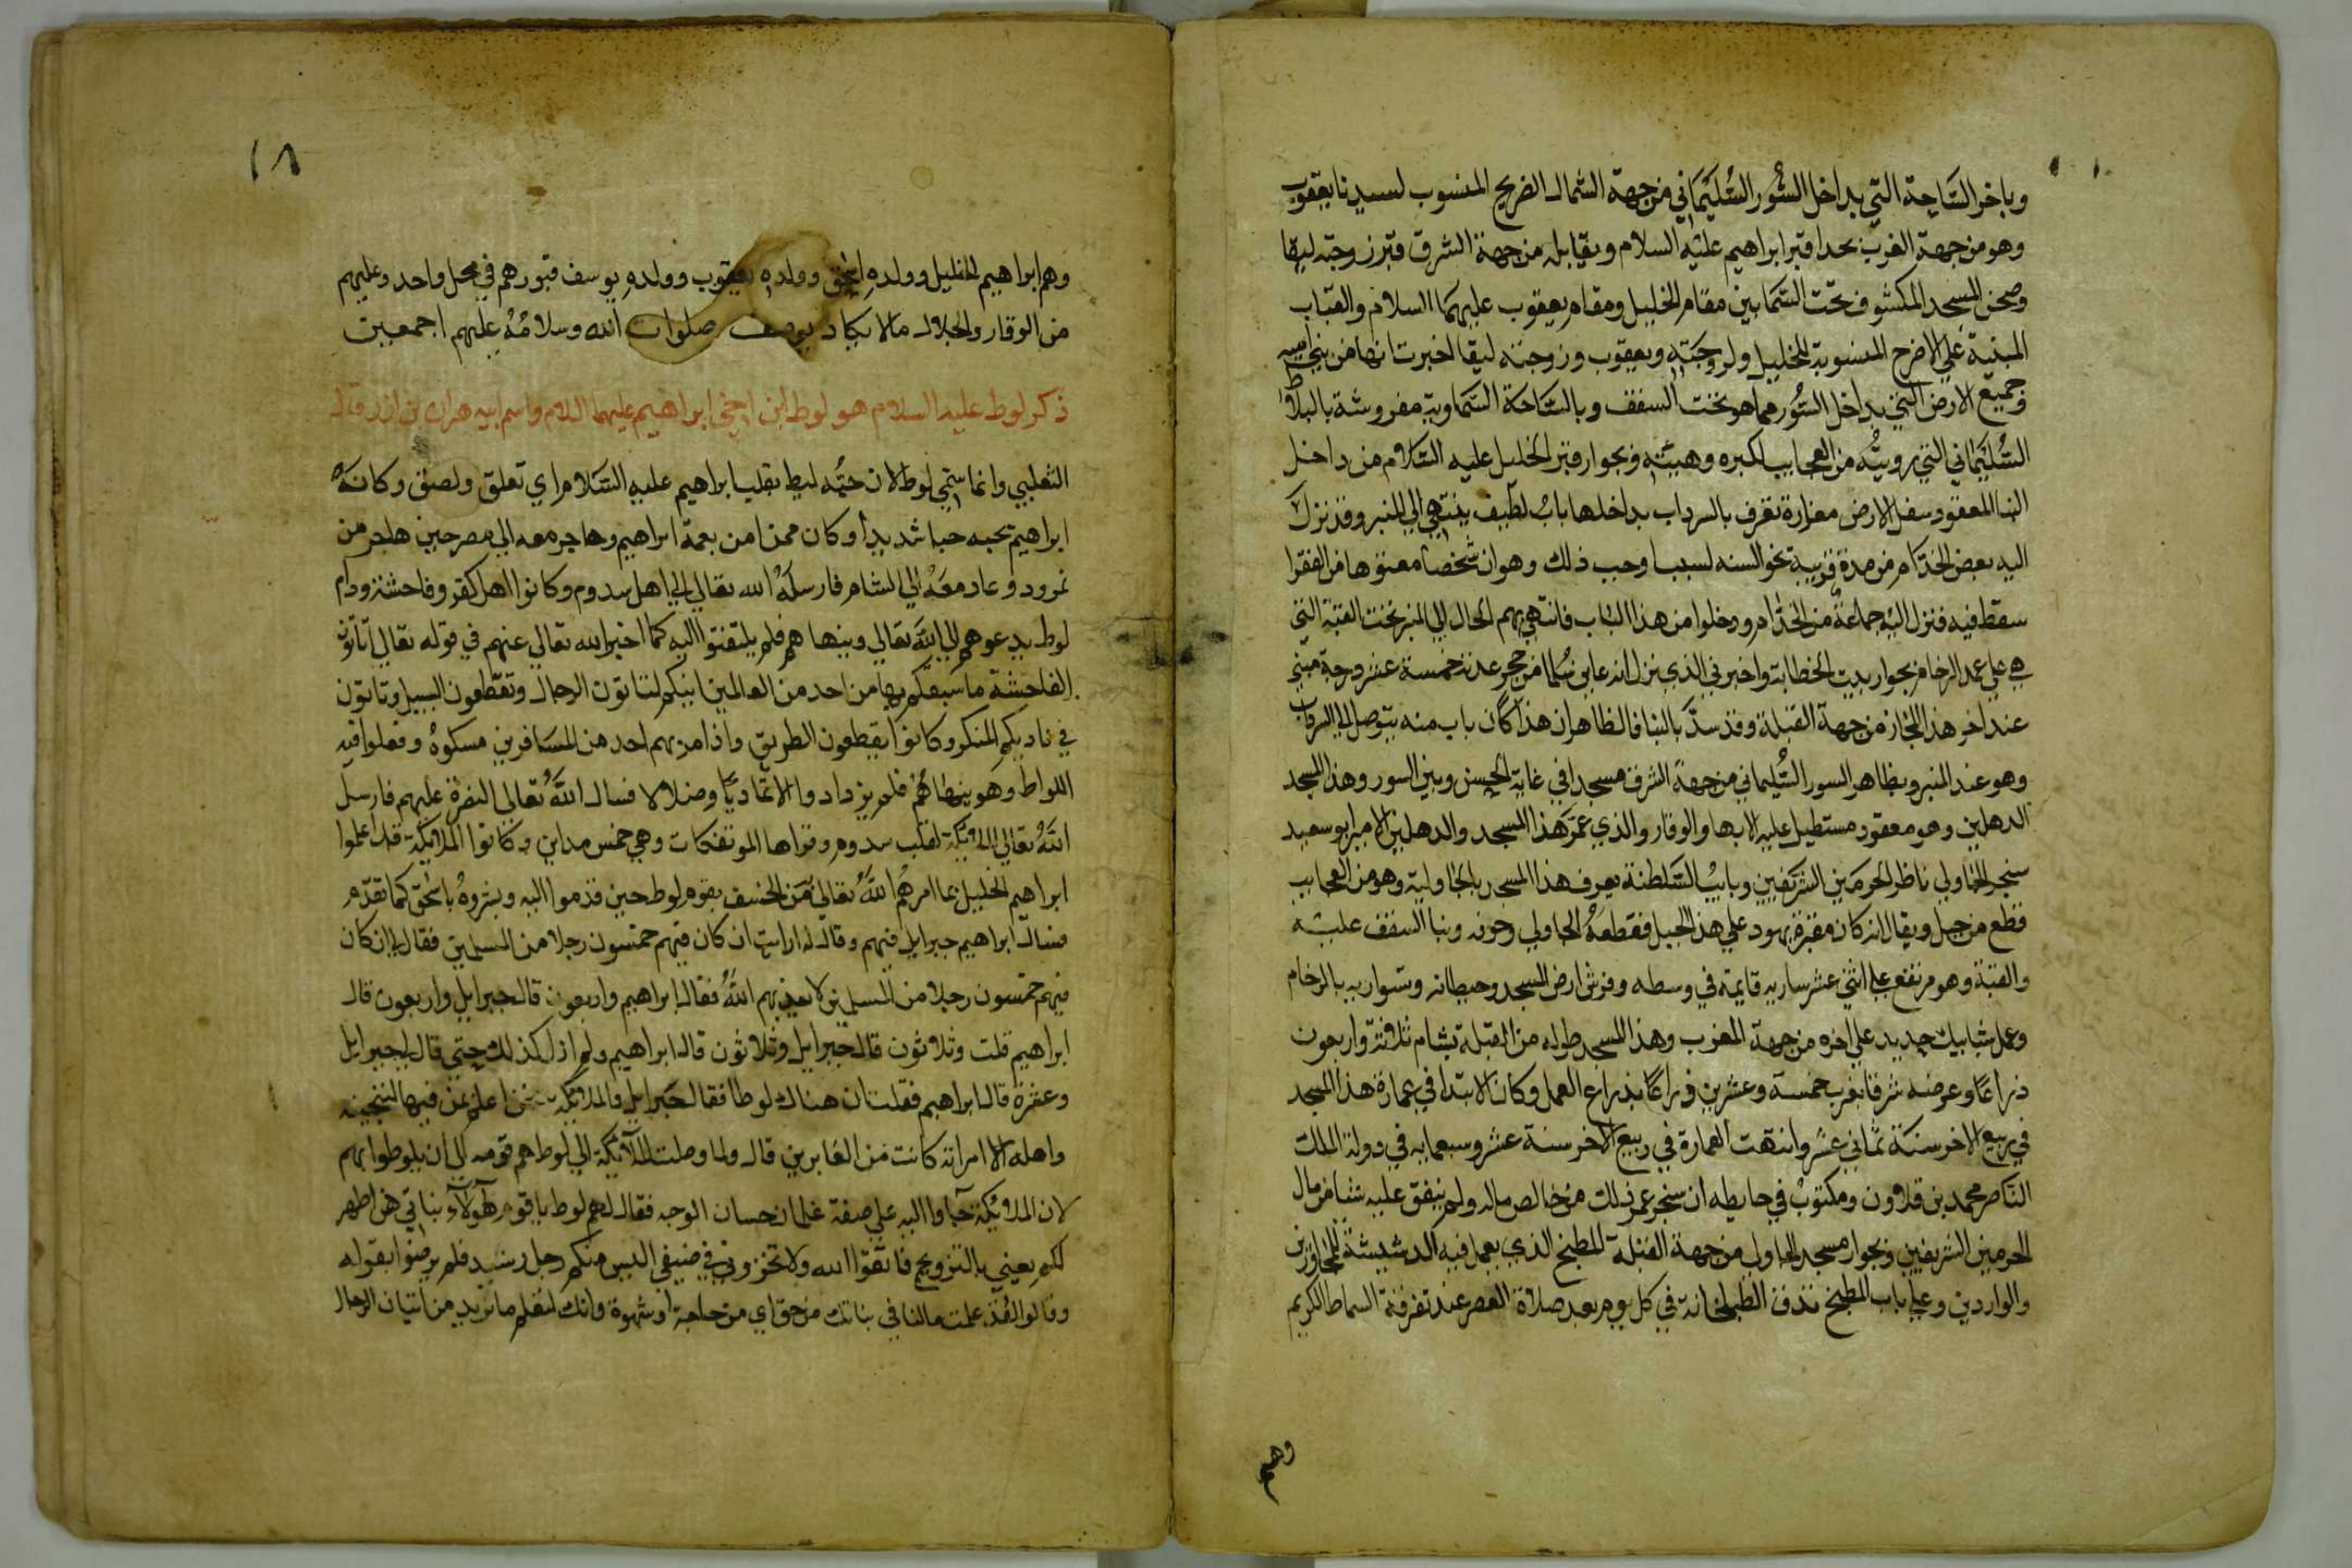 وباخر الساحة التي بداخل السور السليماني من جهة الشمال الضريح المنسوب لسيدنا يعقوب
وهو من جهة الغرب بحدا قبر ابراهيم عليه السلام ويقابله من جهة الشرق قبر زوجته ليقا
وصحن المسجد المكشوف تحت السما بين مقام الخليل ومقام يعقوب عليهما السلام والقباب
المبنية علي الاضرح المنسوبة للخليل ولزوجته ويعقوب وزوجته ليقا اخبرت انها من بنا اميه
وجميع الارض التي بداخل السور مما هو تحت السقف وبالساحة السماوية مفروشة بالبلاط
السليماني التي رويته من العجايب لكبره وهيبته وبجوار قبر الخليل عليه السلام من داخل
البنا المعقود سفل الارض مغارة تعرف بالسرداب بداخلها باب لطيف ينتهي الي المنبر وقد نزل
اليه بعض الخدام من مدة قريبة نحو السنه لسبب اوجب ذلك وهو ان شخصا معتوها من الفقرا
سقط فيه فنزل اليه جماعة من الخدام ودخلوا من هذا الباب فانتهي بهم الحال الي المنبر تحت القبة التي
هي علي عمد الرخام بجوار بيت الخطابة واخبرني الذي نزل انه عاين سلما من حجر عدته خمسة عشر درجة مبني
عند اخر هذا المجاز من جهة القبلة وقد سد بالبنا فالظاهر ان هذا كان باب منه يتوصل الي السرداب
وهو عند المنبر وبظاهر السور السليماني من جهة الشرق مسجد في غاية الحسن وبين السور وهذا المسجد
الدهليز وهو معقود مستطيل عليه الابها والوقار والذي عمر هذا المسجد والدهليز الامير ابو سعيد
سنجر الجاولي ناظر الحرمين الشريفين ونايب السلطنة يعرف هذا المسجد بالجاولية وهو من العجايب
قطع من جبل ويقال انه كان مقبرة يهود علي هذا الجبل فقطعه الجاولي وجوفه وبنا السقف عليه
والقبة وهو مرتفع علي اثني عشر ساريه قايمة في وسطه وفرش ارض المسجد وحيطانه وسواريه بالرخام
وعمل شبابيك حديد علي اخره من جهة الغرب وهذا المسجد طوله من القبلة بشام ثلاثة واربعون
ذراعا وعرضه شرقا بغرب خمسة وعشرين ذراعا بذراع العمل وكان الابتدا في عمارة هذا المسجد
في ربيع الاخر سنة ثماني عشر وانتهت العمارة في ربيع الاخر سنة عشر وسبعمايه في دولة الملك
الناصر محمد بن قلاون ومكتوب في حايطه ان سنجر عمر ذلك من خالص ماله ولم ينفق عليه شيا من مال
الحرمين الشريفين وبجوار مسجد الجاولي من جهة القبلة المطبخ الذي يعمل فيه الدشيشة للمجاورين
والواردين وعلي باب المطبخ تدق الطبلخانة في كل يوم بعد صلاة العصر عند تفرقة السماط الكريم
وهم
١٨
وهم ابراهيم الخليل وولده اسحق وولده يعقوب وولده يوسف قبورهم في محل واحد وعليهم
من الوقار والجلال ما لا يكاد يوصف صلوات الله وسلامه عليهم اجمعين
ذكر لوط عليه السلام هو لوط ابن اخي ابراهيم عليهما السلام واسم ابيه هران بن ازر قال
الثعلبي وانما سمي لوط لان حبه ليط بقلب ابراهيم عليه السلام اي تعلق ولصق وكان
ابراهيم يحبه حبا شديدا وكان ممن امن بعمه ابراهيم وهاجر معه الي مصر حين هاجر من
نمرود وعاد معه الي الشام فارسله الله تعالي الي اهل سدوم وكانوا اهل كفر وفاحشة ودام
لوط يدعوهم الي الله تعالي وينهاهم فلم يلتفتوا اليه كما اخبر الله تعالي عنهم في قوله تعالي اتاتون
الفاحشة ما سبقكم بها من احد من العالمين اينكم لتاتون الرجال وتقطعون السبيل وتاتون
في ناديكم المنكر وكانوا يقطعون الطريق واذا مر بهم احد من المسافرين مسكوه وفعلوا فيه
اللواط وهو ينهاهم فلم يزدادوا الا تماديا وضلالا فسال الله تعالي النصرة عليهم فارسل
الله تعالي الملايكة لقلب سدوم وقراها الموتفكات وهي خمس مداين وكانوا الملايكة قد اعلموا
ابراهيم الخليل بما امرهم الله تعالي من الخسف بقوم لوط حين قدموا اليه وبشروه باسحق كما تقدم
فسال ابراهيم جبرايل فيهم وقال له ارايت ان كان فيهم خمسون رجلا من المسلمين فقال لي ان كان
فيهم خمسون رجلا من المسلمين لا يعذبهم الله فقال ابراهيم واربعون قال جبرايل واربعون قال
ابراهيم قلت وثلاثون قال جبرايل وثلاثون قال ابراهيم ولم ازل كذلك حتي قال لي جبرايل
وعشرة قال ابراهيم فقلت ان هناك لوطا فقال جبرايل والملايكة نحن اعلم بمن فيها لننجينه
واهله الا امراته كانت من الغابرين قال ولما وصلت الملايكة الي لوط هم قومه الي ان يلوطوا بهم
لان الملايكة جاوا اليه علي صفة غلمان حسان الوجه فقال لهم لوط ياقوم هولاء بناتي هن اطهر
لكم يعني بالتزويج فاتقوا الله ولا تخزون في ضيفي اليس منكم رجل رشيد فلم يرضوا بقوله
وقالوا لقد علمت مالنا في بناتك من حق اي من حاجة او شهوة وانك لتعلم ما نريد من اتيان الرجال